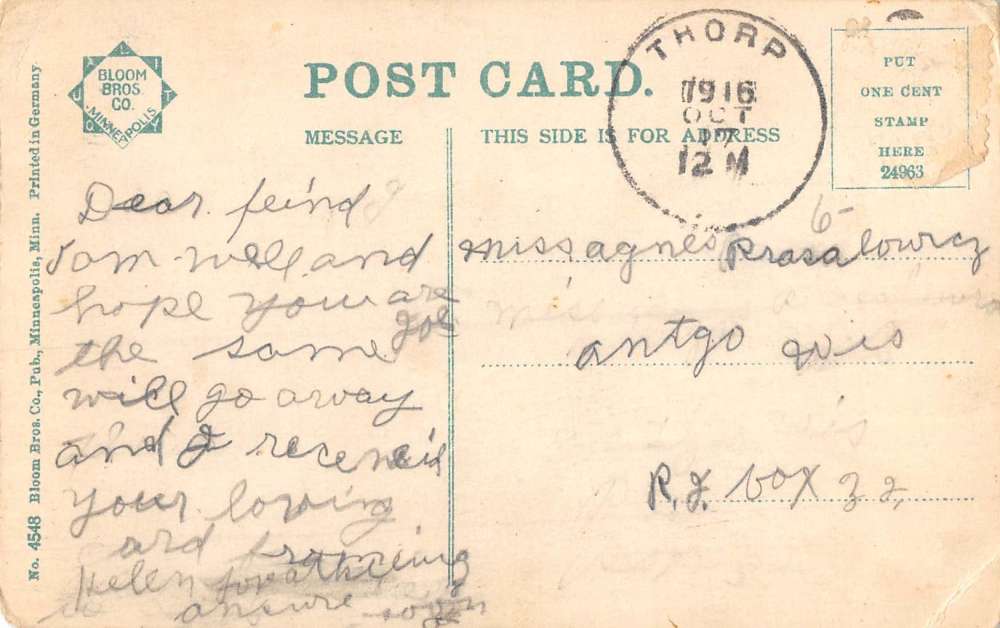 BLOOM
BROS.
CO.
MINNEAPOLIS
QUALITY
POST CARD.
MESSAGE
THIS SIDE IS FOR ADDRESS
THORP
1916
OCT
17
12 M
PUT
ONE CENT
STAMP
HERE
24963
No. 4548 Bloom Bros. Co., Pub., Minneapolis, Minn. Printed in Germany
Dear feind
I am well and
hope you are
the same Joe
will go away
and I receneid
your loving
ard from
Helen
ansure soon
6-
Miss agnes Prasalowicz
antgo wis
R.J. box 32,